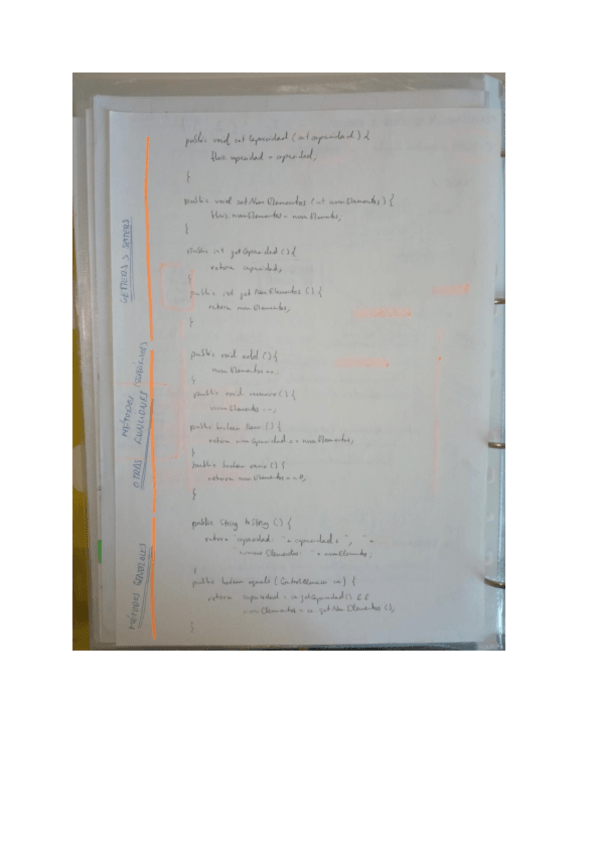 GETTERS Y SETTERS
public void setCapacidad (int capacidad) {
this.capacidad = capacidad;
}
public void setNumElementos (int numElementos) {
this.numElementos = numElementos;
}
public int getCapacidad () {
return capacidad;
}
public int getNumElementos () {
return numElementos;
}
OTRAS FUNCIONES
MÉTODOS
public void add () {
numElementos ++;
}
public void remove () {
numElementos --;
public boolean lleno () {
return capacidad == numElementos;
}
public boolean vacio () {
return numElementos == 0;
}
MÉTODOS GENERALES
public String toString () {
return "capacidad: " + capacidad + ", " +
numElementos: " + numElementos;
}
public boolean equals ( ) {
return capacidad = ca.getCapacidad() &&
numElementos = ca.getNumElementos ();
}